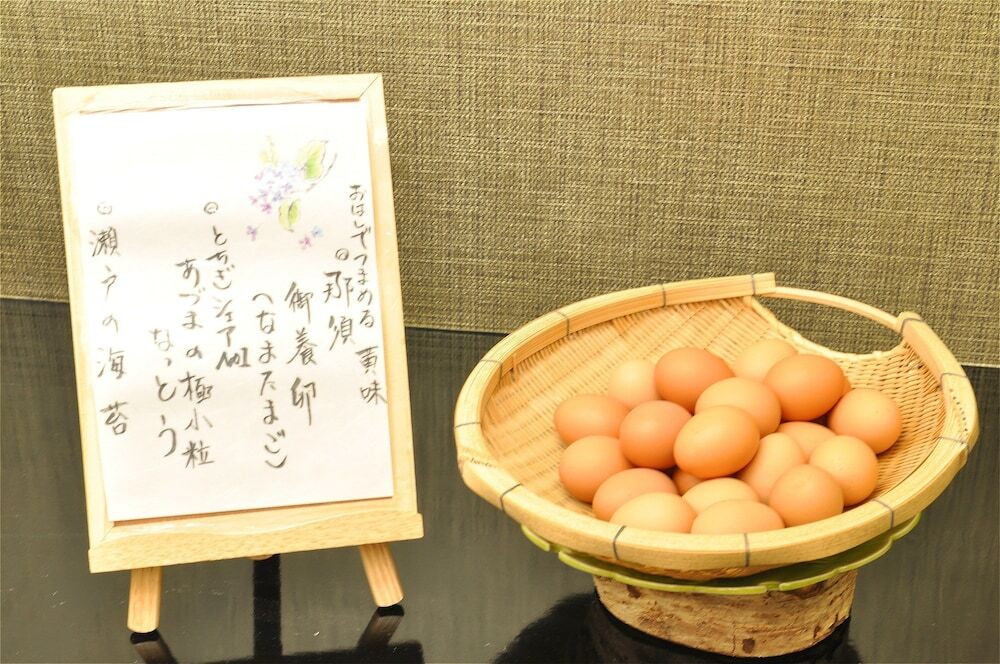 おはしでつまめる黄味
◎那須
御養卵
(なまたまご)
◎とちぎシェアNo1
あづまの極小粒
なっとう
◎瀬戸の海苔